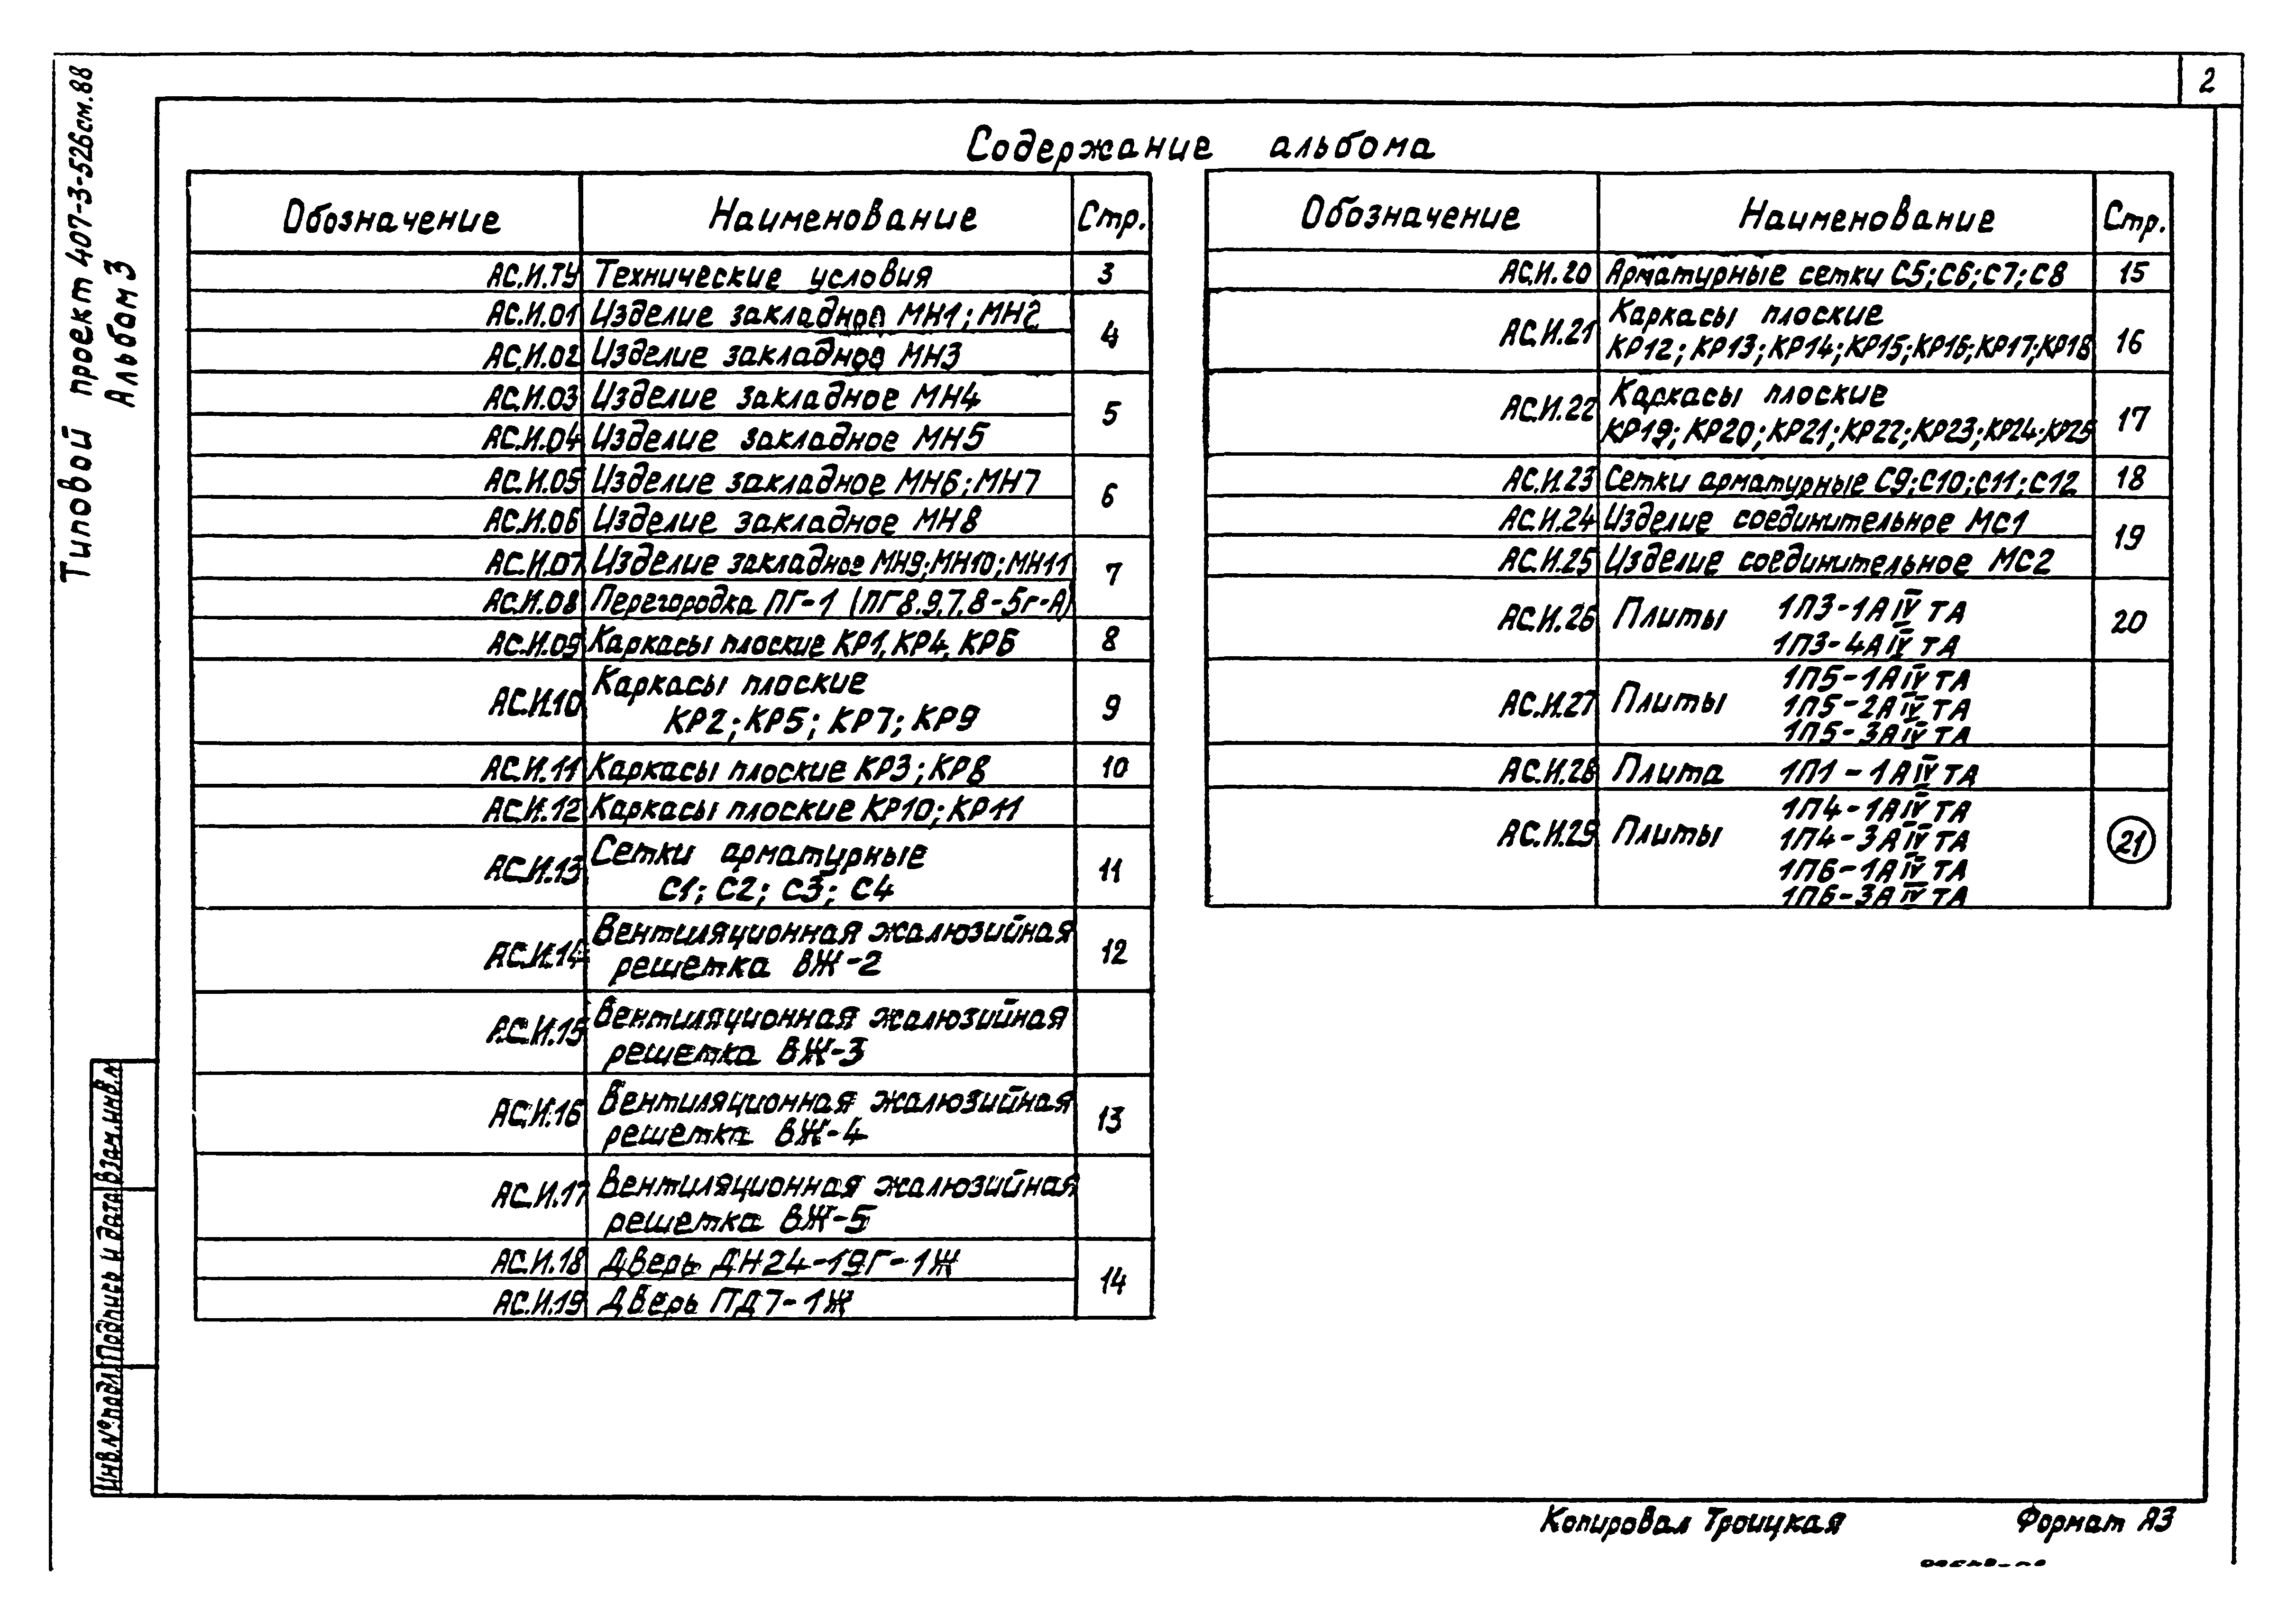 2
Типовой проект 407-3-526см.88
Альбом 3
Содержание альбома
Обозначение Наименование Стр.
АС.И.ТУ Технические условия 3
АС.И.01 Изделие закладное МН1; МН2
4
АС.И.02 Изделие закладное МН3
АС.И.03 Изделие закладное МН4
5
АС.И.04 Изделие закладное МН5
АС.И.05 Изделие закладное МН6; МН7
6
АС.И.06 Изделие закладное МН8
АС.И.07 Изделие закладное МН9; МН10; МН11
7
АС.И.08 Перегородка ПГ-1 (ПГ8.9.7.8-5г-А)
АС.И.09 Каркасы плоские КР1, КР4, КР6 8
АС.И.10 Каркасы плоские
КР2; КР5; КР7; КР9 9
АС.И.11 Каркасы плоские КР3; КР8 10
АС.И.12 Каркасы плоские КР10; КР11
АС.И.13 Сетки арматурные
С1; С2; С3; С4 11
АС.И.14 Вентиляционная жалюзийная
решетка ВЖ-2 12
АС.И.15 Вентиляционная жалюзийная
решетка ВЖ-3
АС.И.16 Вентиляционная жалюзийная
решетка ВЖ-4 13
АС.И.17 Вентиляционная жалюзийная
решетка ВЖ-5
АС.И.18 Дверь ДН24-19Г-1Ж
14
АС.И.19 Дверь ПД7-1Ж
Обозначение Наименование Стр.
АС.И.20 Арматурные сетки С5; С6; С7; С8 15
АС.И.21 Каркасы плоские
КР12; КР13; КР14; КР15; КР16; КР17; КР18 16
АС.И.22 Каркасы плоские
КР19; КР20; КР21; КР22; КР23; КР24; КР25 17
АС.И.23 Сетки арматурные С9; С10; С11; С12 18
АС.И.24 Изделие соединительное МС1
19
АС.И.25 Изделие соединительное МС2
АС.И.26 Плиты 1П3-1АIV ТА
1П3-4АIV ТА 20
АС.И.27 Плиты 1П5-1АIV ТА
1П5-2АIV ТА
1П5-3АIV ТА
АС.И.28 Плита 1П1-1АIV ТА
АС.И.29 Плиты 1П4-1АIV ТА
1П4-3АIV ТА 21
1П6-1АIV ТА
1П6-3АIV ТА
Взам.инв.№
Подпись и дата
Инв.№подл.
Копировал Троицкая Формат А3